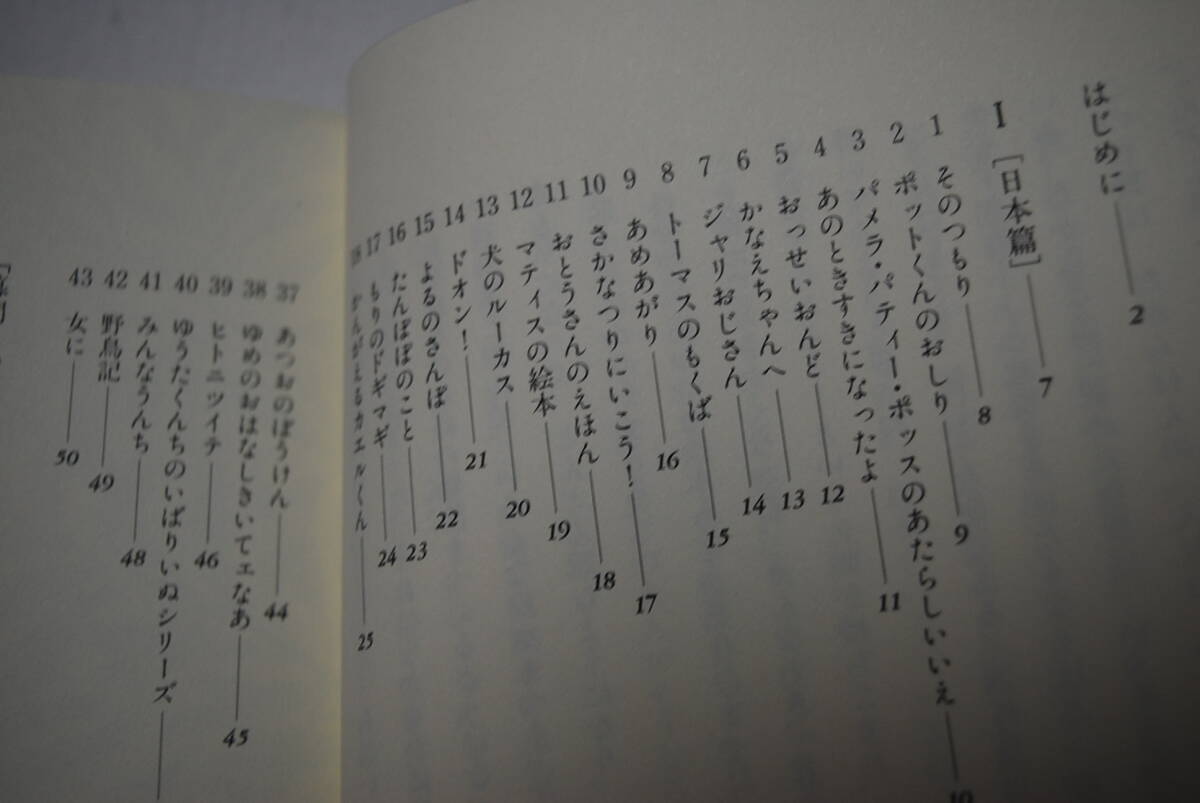 はじめに 2
I [日本篇] 7
1 そのつもり 8
2 ポットくんのおしり 9
3 パメラ・パティー・ポッスのあたらしいいえ 10
4 あのときすきになったよ 11
5 おっせいおんど 12
6 かなえちゃんへ 13
7 ジャリおじさん 14
8 トーマスのもくば 15
9 あめあがり 16
10 さかなつりにいこう! 17
11 おとうさんのえほん 18
12 マティスの絵本 19
13 犬のルーカス 20
14 ドオン! 21
15 よるのさんぽ 22
16 たんぽぽのこと 23
17 もりのドギマギ 24
18 かんがえるカエルくん 25
37 あつおのぼうけん 44
38 ゆめのおはなしきいてェなあ 45
39 ヒトニツイテ 46
40 ゆうたくんちのいばりいぬシリーズ
41 みんなうんち 48
42 野鳥記 49
43 女に 50